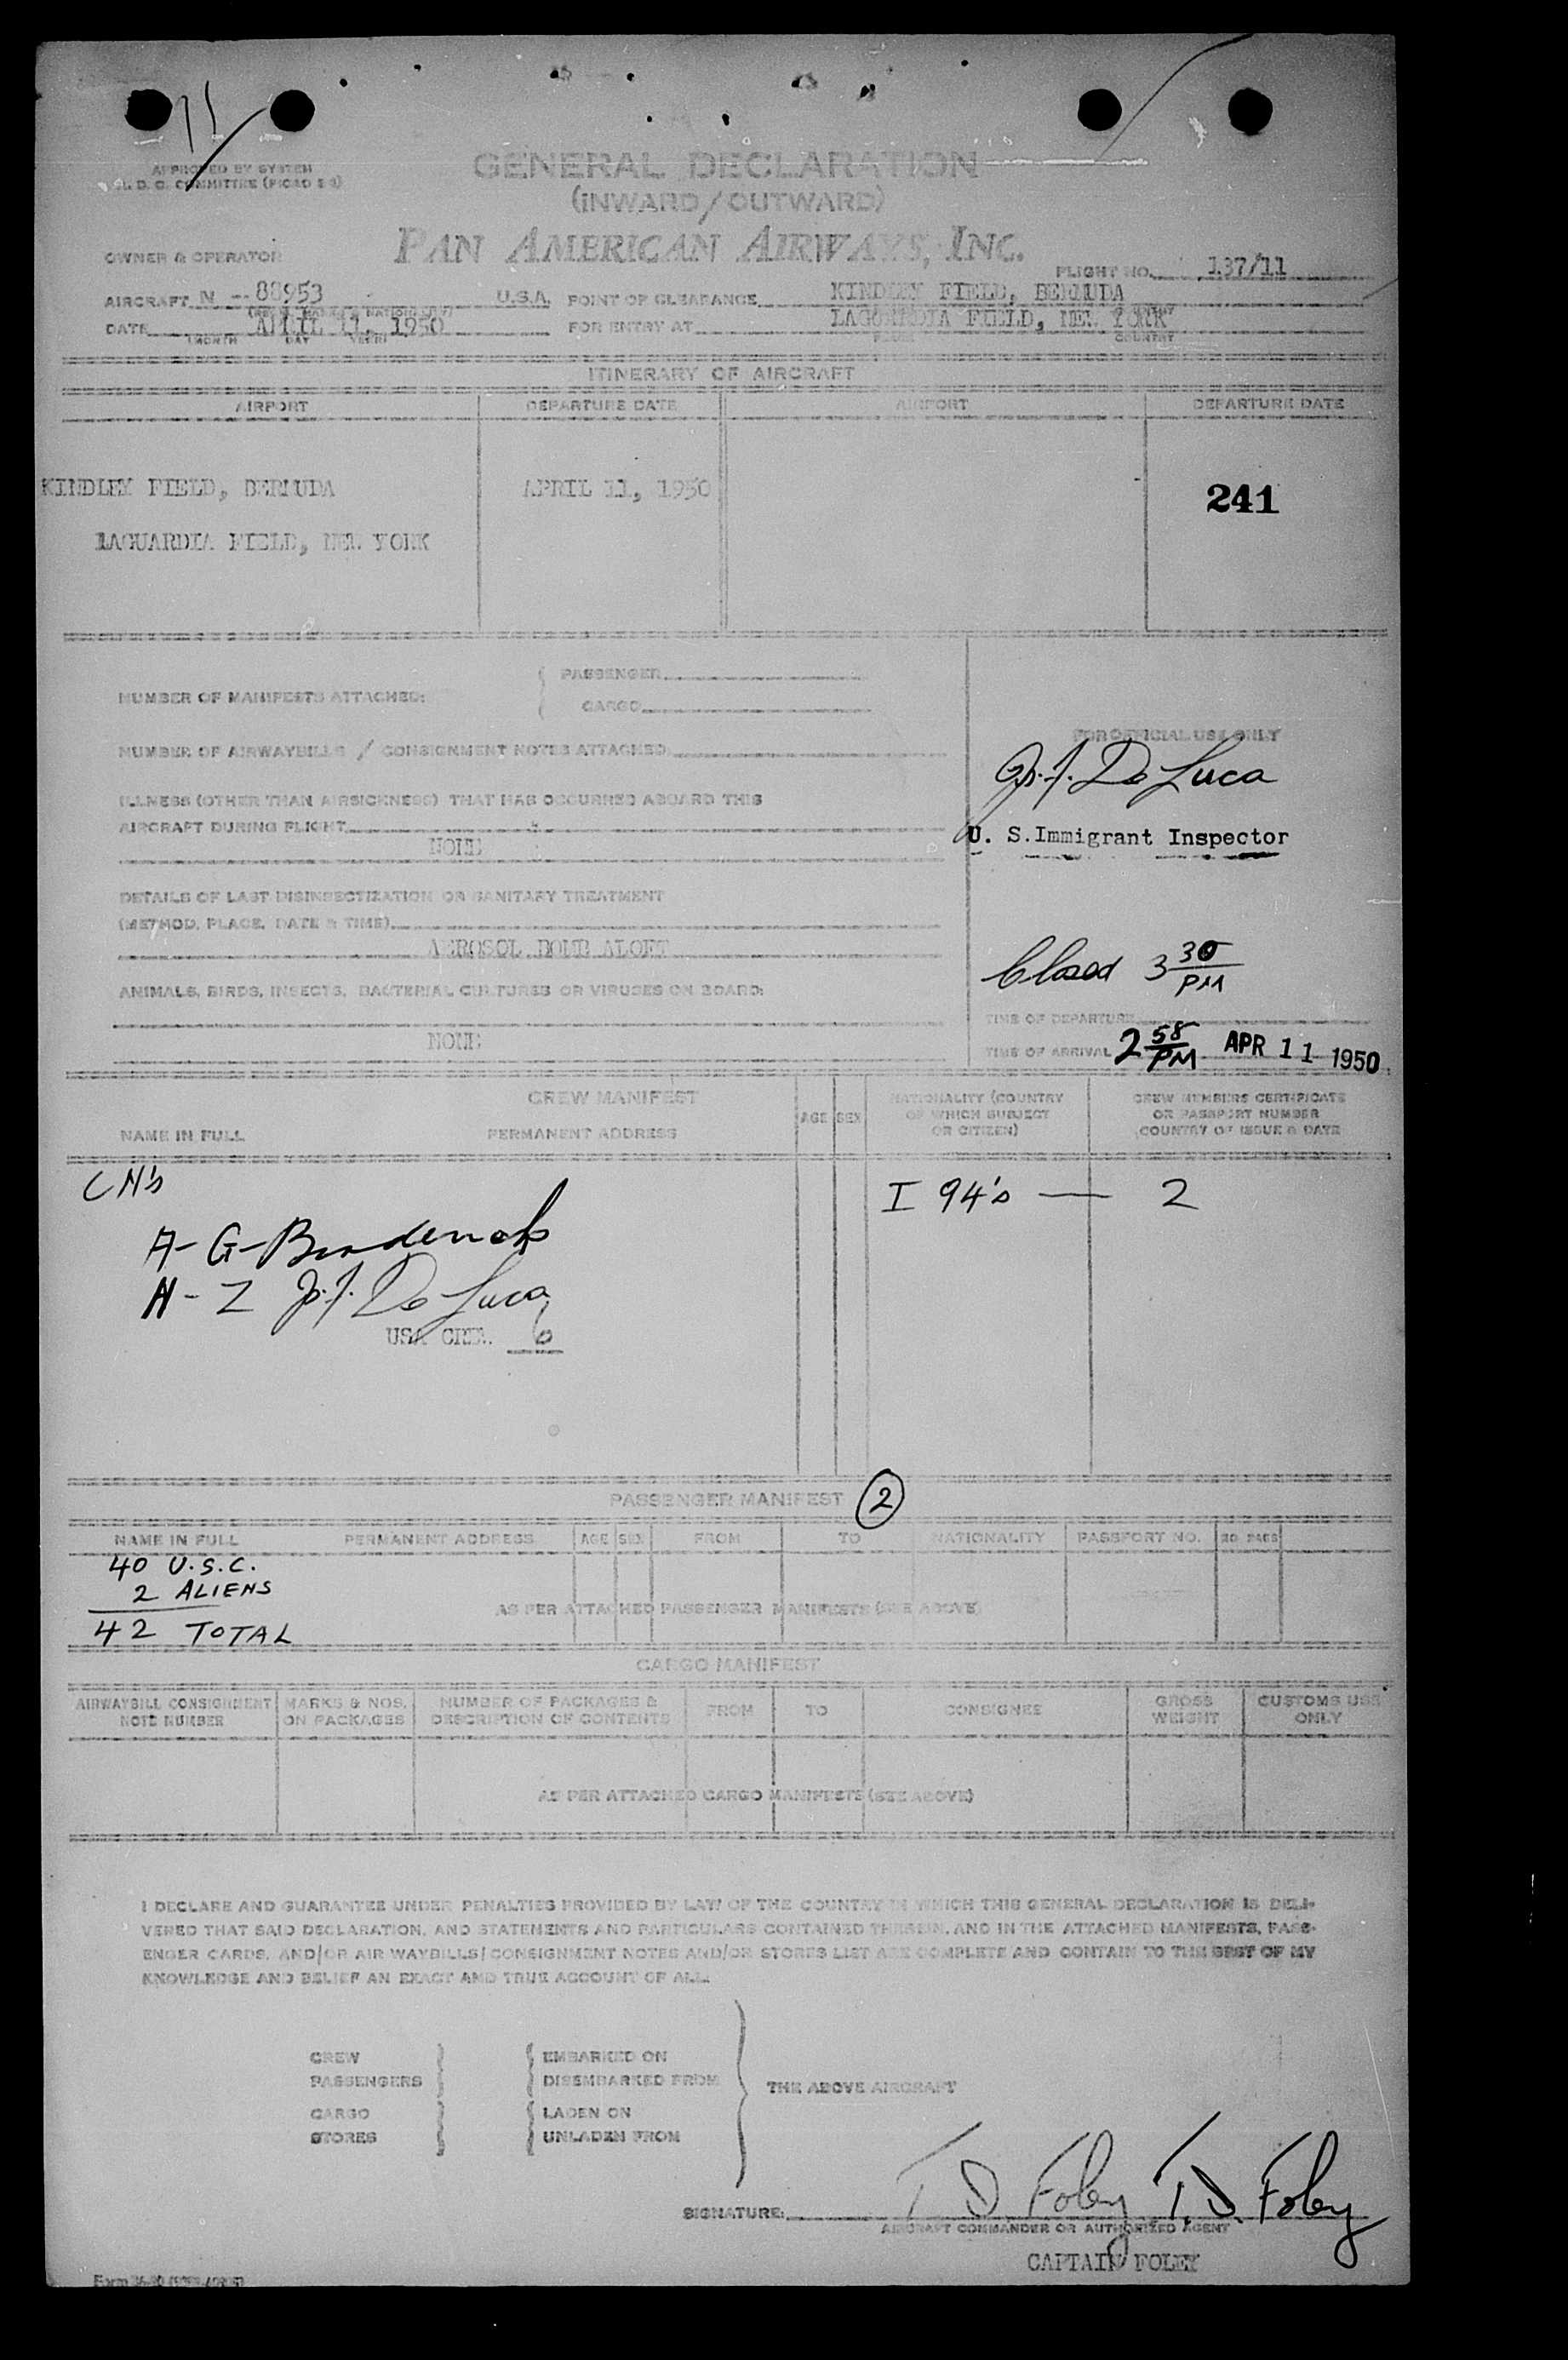 APPROVED BY SYSTEM
GENERAL DECLARATION
(INWARD/OUTWARD)
OWNER & OPERATOR
PAN AMERICAN AIRWAYS, INC.
FLIGHT NO. 137/11
AIRCRAFT N - 88953 U.S.A. POINT OF CLEARANCE KINDLEY FIELD, BERMUDA
DATE APRIL 11, 1950 FOR ENTRY AT LAGUARDIA FIELD, NEW YORK
MONTH DAY YEAR PLACE COUNTRY
ITINERARY OF AIRCRAFT
AIRPORT DEPARTURE DATE AIRPORT DEPARTURE DATE
KINDLEY FIELD, BERMUDA APRIL 11, 1950 241
LAGUARDIA FIELD, NEW YORK
PASSENGER
NUMBER OF MANIFESTS ATTACHED:
CARGO
NUMBER OF AIRWAYBILLS / CONSIGNMENT NOTES ATTACHED
ILLNESS (OTHER THAN AIRSICKNESS) THAT HAS OCCURRED ABOARD THIS
AIRCRAFT DURING FLIGHT
NONE
DETAILS OF LAST DISINSECTIZATION OR SANITARY TREATMENT
(METHOD, PLACE, DATE & TIME)
AEROSOL BOMB ALOFT
ANIMALS, BIRDS, INSECTS, BACTERIAL CULTURES OR VIRUSES ON BOARD:
NONE
FOR OFFICIAL USE ONLY
De Luca
U. S.Immigrant Inspector
Closed 3 30 PM
TIME OF DEPARTURE
TIME OF ARRIVAL 2 58 PM APR 11 1950
CREW MANIFEST
NAME IN FULL PERMANENT ADDRESS AGE SEX NATIONALITY (COUNTRY OF WHICH SUBJECT OR CITIZEN) CREW MEMBERS CERTIFICATE OR PASSPORT NUMBER COUNTRY OF ISSUE & DATE
I 94's — 2
A-G-Broderick
H-Z De Luca
USA CREW 6
PASSENGER MANIFEST 2
NAME IN FULL PERMANENT ADDRESS AGE SEX FROM TO NATIONALITY PASSPORT NO.
40 U.S.C.
2 ALIENS
AS PER ATTACHED PASSENGER MANIFESTS (SEE ABOVE)
42 TOTAL
CARGO MANIFEST
AIRWAYBILL CONSIGNMENT NOTE NUMBER MARKS & NOS. ON PACKAGES NUMBER OF PACKAGES & DESCRIPTION OF CONTENTS FROM TO CONSIGNEE GROSS WEIGHT CUSTOMS USE ONLY
AS PER ATTACHED CARGO MANIFESTS (SEE ABOVE)
I DECLARE AND GUARANTEE UNDER PENALTIES PROVIDED BY LAW OF THE COUNTRY IN WHICH THIS GENERAL DECLARATION IS DELI-
VERED THAT SAID DECLARATION, AND STATEMENTS AND PARTICULARS CONTAINED THEREIN, AND IN THE ATTACHED MANIFESTS, PASS-
ENGER CARDS, AND/OR AIR WAYBILLS/CONSIGNMENT NOTES AND/OR STORES LIST ARE COMPLETE AND CONTAIN TO THE BEST OF MY
KNOWLEDGE AND BELIEF AN EXACT AND TRUE ACCOUNT OF ALL.
CREW EMBARKED ON
PASSENGERS DISEMBARKED FROM
THE ABOVE AIRCRAFT
CARGO LADEN ON
STORES UNLADEN FROM
SIGNATURE: T. D. Foley T. D. Foley
AIRCRAFT COMMANDER OR AUTHORIZED AGENT
CAPTAIN FOLEY